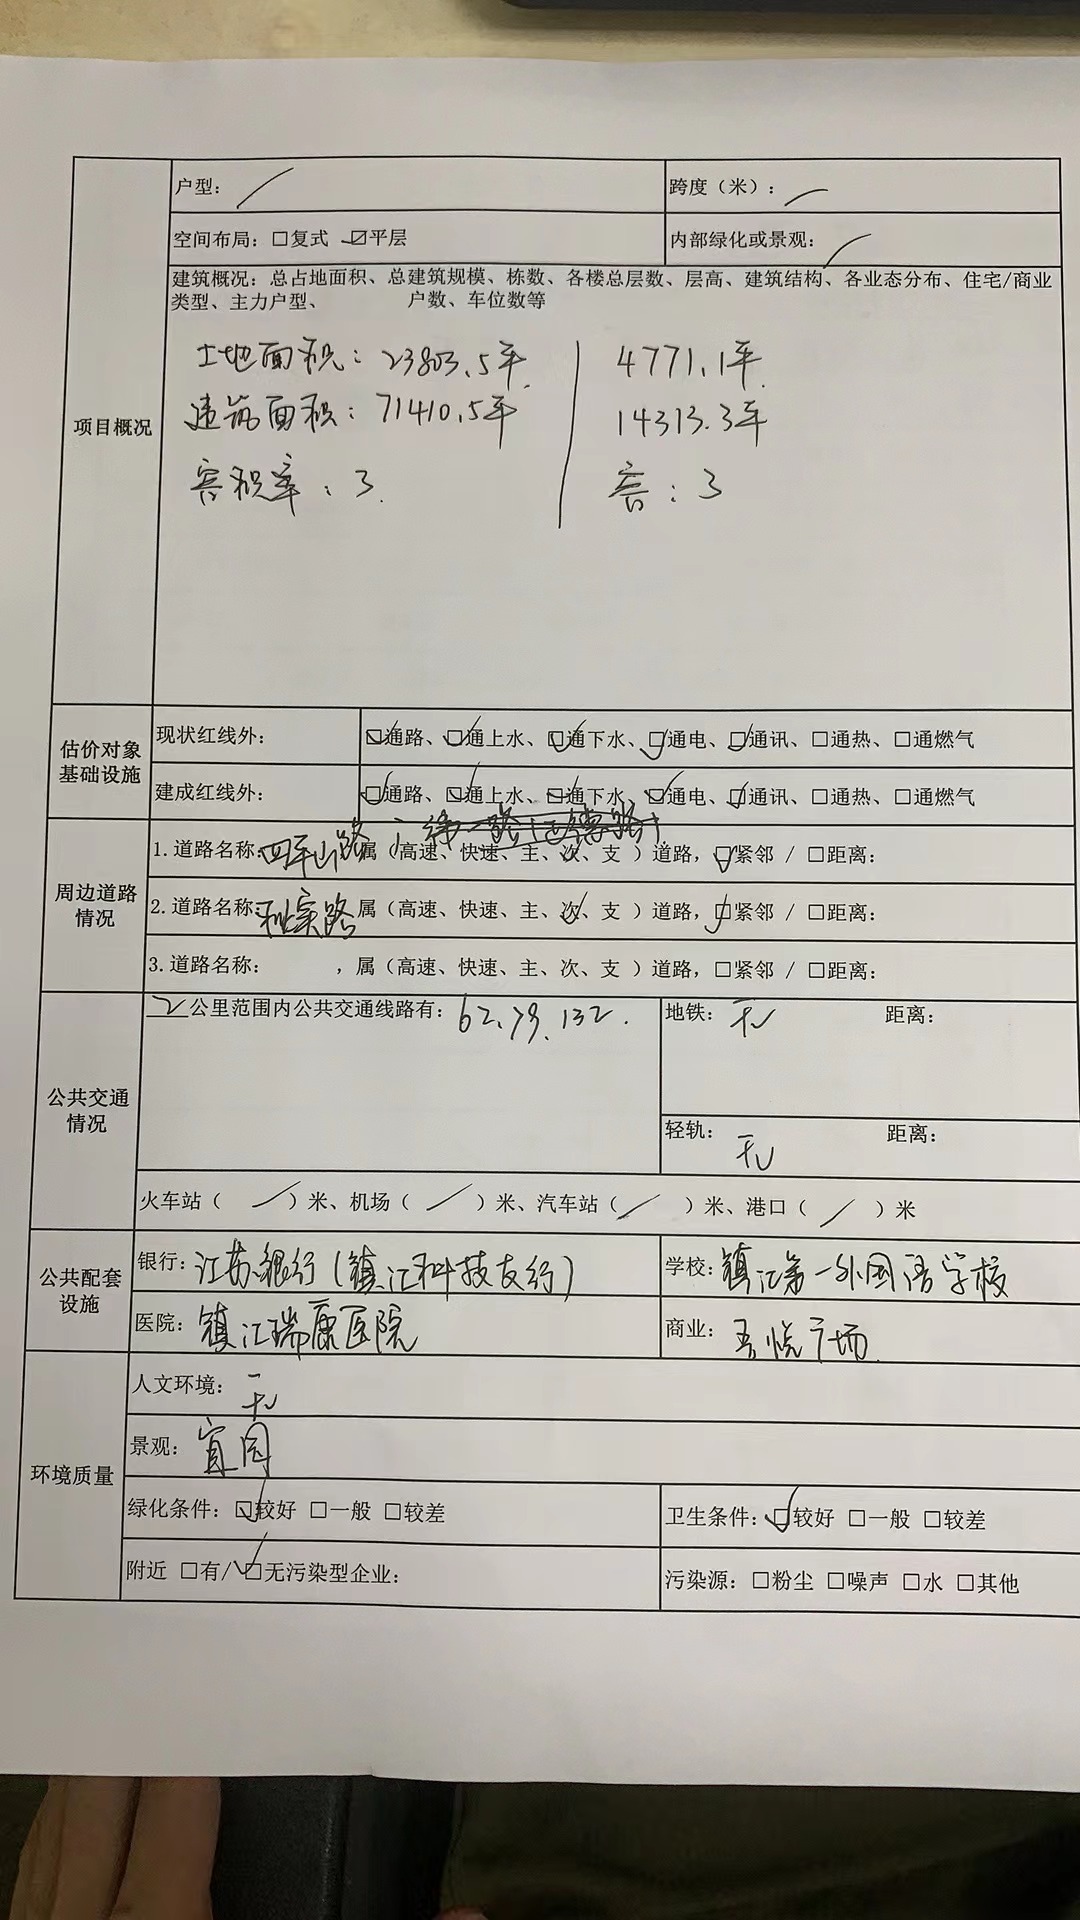 户型：/
跨度（米）：/
空间布局：□复式 ☑平层
内部绿化或景观：/
建筑概况：总占地面积、总建筑规模、栋数、各楼总层数、层高、建筑结构、各业态分布、住宅/商业
类型、主力户型、 户数、车位数等
土地面积：23803.5平
4771.1平
建筑面积：71410.5平
14313.3平
容积率：3
容：3
项目概况
估价对象
基础设施
现状红线外：
☑通路、☑通上水、☑通下水、☑通电、☑通讯、□通热、□通燃气
建成红线外：
☑通路、☑通上水、☑通下水、☑通电、☑通讯、□通热、□通燃气
周边道路
情况
1.道路名称：四平山路 属（高速、快速、主、次、支 ）道路，☑紧邻 / □距离：
2.道路名称： 属（高速、快速、主、次、支 ）道路，☑紧邻 / □距离：
3.道路名称： ，属（高速、快速、主、次、支 ）道路，□紧邻 / □距离：
公共交通
情况
2公里范围内公共交通线路有：62、79、132.
地铁：无 距离：
轻轨：无 距离：
火车站（ / ）米、机场（ / ）米、汽车站（ / ）米、港口（ / ）米
公共配套
设施
银行：江苏银行（镇江科技支行）
学校：镇江第一外国语学校
医院：镇江瑞康医院
商业：吾悦广场
环境质量
人文环境：无
景观：宜园
绿化条件：☑较好 □一般 □较差
卫生条件：☑较好 □一般 □较差
附近 □有/☑无污染型企业：
污染源：□粉尘 □噪声 □水 □其他